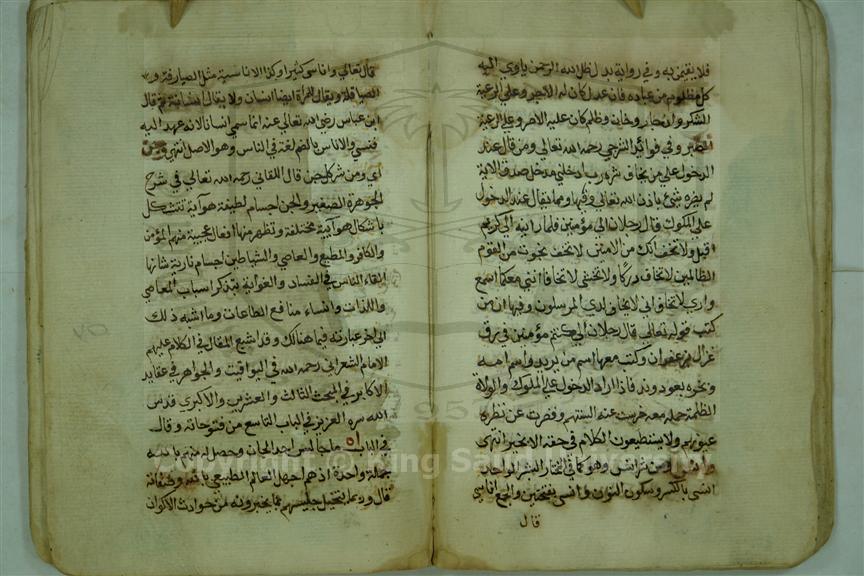 فلا يقيمن به وفي رواية بدل ظل الله الرحمن ياوي اليه
كل مظلوم من عباده فان عدل كان له الاجر وعلى الرعية
الشكر وان جار وخان وظلم كان عليه الاصر وعلى الرعية
الصبر وفي فوائد الشرجي رحمه الله تعالى ومن قال عند
الدخول على من يخاف شره رب ادخلني مدخل صدق الاية
لم يضره شيء باذن الله تعالى وفيها ومما يقال عند الدخول
على الملوك قال رجلان الى مؤمنين فلما راينه الى كريم
اقبل ولا تخف انك من الامنين لا تخف نجوت من القوم
الظالمين لا تخاف دركا ولا تخشى لا تخافا انني معكما اسمع
وارى لا تخف اني لا يخاف لدي المرسلون وفيها ان من
كتب قوله تعالى قال رجلان الى كنتم مؤمنين في رق
غزال بزعفران وكتب معها اسم من يريد واسم امه
وبخره بعود وند فاذا اراد الدخول على الملوك والولاة
الظلمة حمله معه خرست عنه السنتهم وقصرت عن نظره
عيونهم ولا يستطيعون الكلام في حقه الا بخير انتهى
من شر انس وهو كما في المختار البشر الواحد
انسي بالكسر وسكون النون وانسي بفتحتين والجمع اناسي
قال
قال تعالى واناسي كثيرا وكذا الاناسية مثل الصيارفة و
الصياقلة ويقال للمراة ايضا انسان ولا يقال انسانة ثم قال
ابن عباس رضي الله تعالى عنه انما سمي انسانا لانه عهد اليه
فنسي والاناس بالضم لغة في الناس وهو الاصل انتهى وجن
اي ومن شر كل جن قال اللقاني رحمه الله تعالى في شرح
الجوهرة الصغير والجن اجسام لطيفة هوآية تتشكل
باشكال هوآيية مختلفة وتظهر منها افعال عجيبة منهم المؤمن
والكافر والمطيع والعاصي والشياطين اجسام نارية شانها
القاء الناس في الفساد والغواية بتذكر اسباب المعاصي
واللذات وانساء منافع الطاعات وما اشبه ذلك
الى اخر عبارته فيما هنالك وقد اشبع المقال في الكلام عليهم
الامام الشعراني رحمه الله في اليواقيت والجواهر في عقايد
الاكابر في المبحث الثالث والعشرين والاكبري قدس
الله سره العزيز في الباب التاسع من فتوحاته وقال
في الباب ٥١ ما جالس احد الجان وحصل له منهم بالله
جملة واحدة اذ هم اجهل العالم الطبيعي بالله وصفاته
قال وربما يتخيل جليسهم بما يخبرونه من حوادث الاكوان
٧٥
Copyright © King Saud University
1957